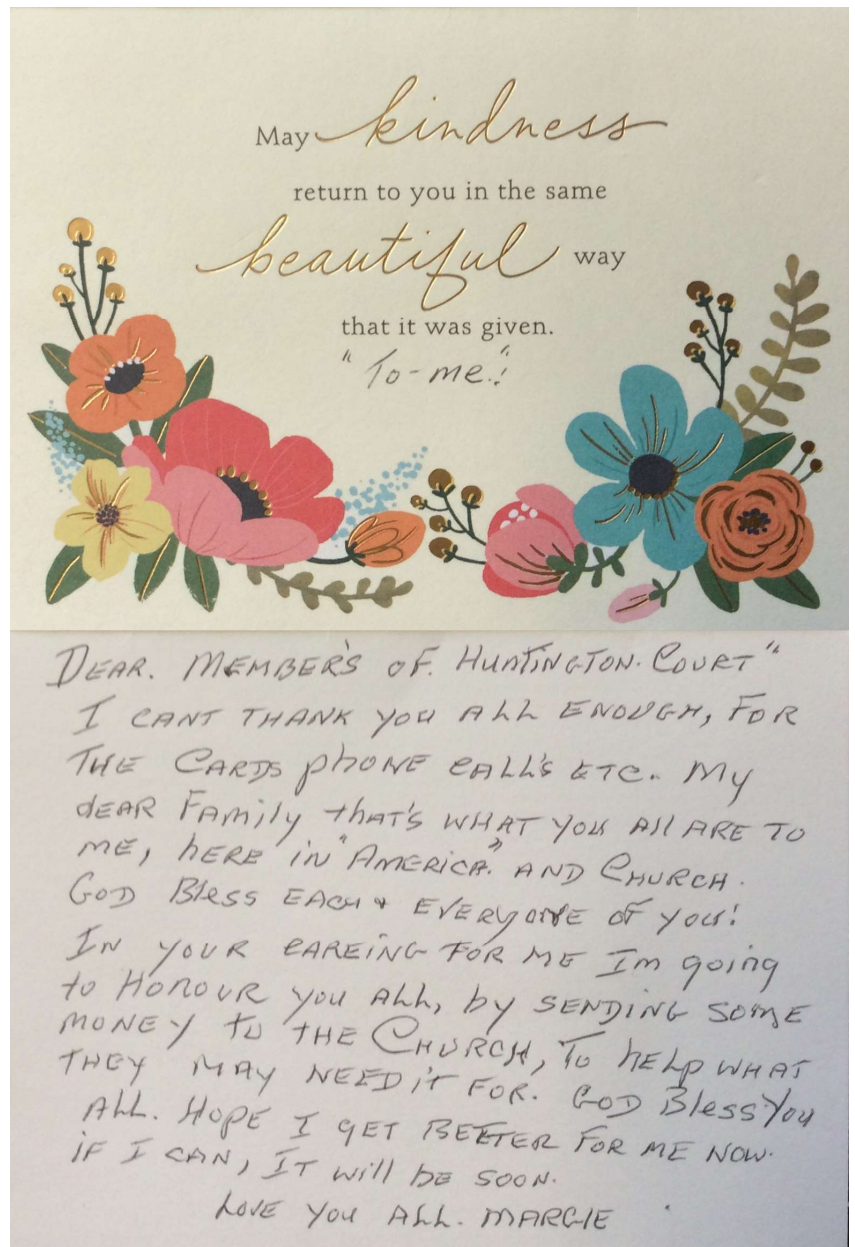 May kindness
return to you in the same
beautiful way
that it was given.
"To-me."!
DEAR. MEMBER'S OF. HUNTINGTON. COURT"
I CANT THANK YOU ALL ENOUGH, FOR
THE CARDS PHONE CALL'S ETC. My
dEAR Family that's WHAT YOU All ARE TO
ME, hERE in "AMERICA." AND CHURCH.
GOD Bless EACH & EVERYONE OF YOU!
IN YOUR CAREING FOR ME Im going
to HONOUR YOU ALL, by SENDING SOME
MONEY TO THE CHURCH, To hELP WHAT
THEY MAY NEED iT FOR. GOD Bless You
ALL. HOPE I GET BETTER FOR ME NOW.
iF I CAN, IT will bE SOON.
LOVE YOU ALL. MARGIE